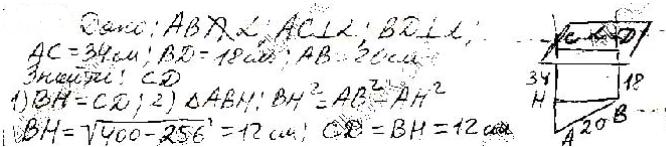 Дано: AB∦α; AC⊥α; BD⊥α;
AC = 34 см; BD = 18 см; AB = 20 см
Знайти: CD
1) BH = CD; 2) △ABH: BH² = AB² - AH²
BH = √400-256 = 12 см; CD = BH = 12 см
C α D
34
18
H
B
A 20